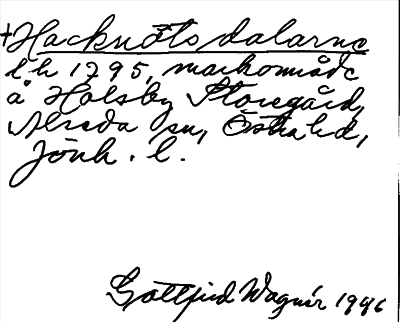 +Hacknöts dalarna
l.h 1795, markområde
å Holsby Storegård,
Alseda sn, Östra hd,
Jönk. l.
Gottfrid Wagnér 1946